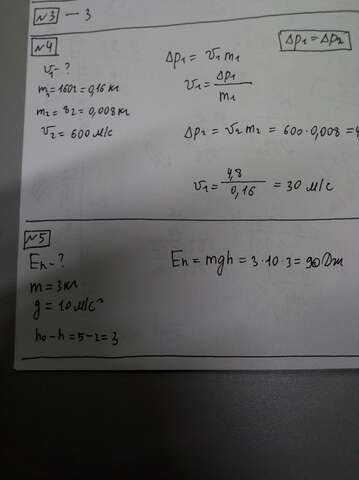 №3 — 3
№4
Δp₁ = Δp₂
v₁ - ?
m₁ = 160г = 0,16 кг
m₂ = 8г = 0,008 кг
v₂ = 600 м/с
Δp₁ = v₁ m₁
v₁ = Δp₁ / m₁
Δp₂ = v₂ m₂ = 600·0,008 = 4
v₁ = 4,8 / 0,16 = 30 м/с
№5
Eп - ?
m = 3кг
g = 10 м/с²
h₀ - h = 5 - 2 = 3
Eп = mgh = 3·10·3 = 90 Дж